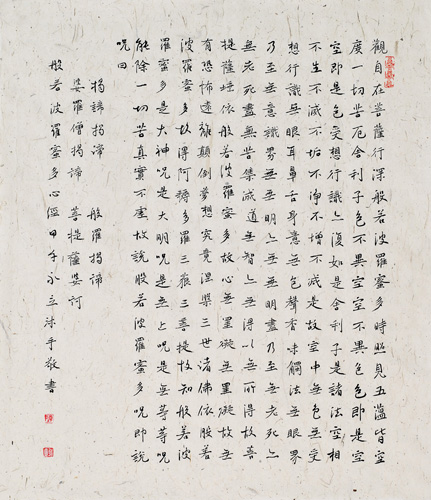 觀自在菩薩行深般若波羅蜜多時照見五蘊皆空
度一切苦厄舍利子色不異空空不異色色即是空
空即是色受想行識亦復如是舍利子是諸法空相
不生不滅不垢不淨不增不減是故空中無色無受
想行識無眼耳鼻舌身意無色聲香味觸法無眼界
乃至無意識界無無明亦無無明盡乃至無老死亦
無老死盡無苦集滅道無智亦無得以無所得故菩
提薩埵依般若波羅蜜多故心無罣礙無罣礙故無
有恐怖遠離顛倒夢想究竟涅槃三世諸佛依般若
波羅蜜多故得阿耨多羅三藐三菩提故知般若波
羅蜜多是大神呪是大明呪是無上呪是無等等呪
能除一切苦真實不虛故說般若波羅蜜多呪即說
呪曰
揭諦揭諦 般羅揭諦
婆羅僧揭諦 菩提薩婆訶
般若波羅蜜多心經 甲午永立沐手敬書